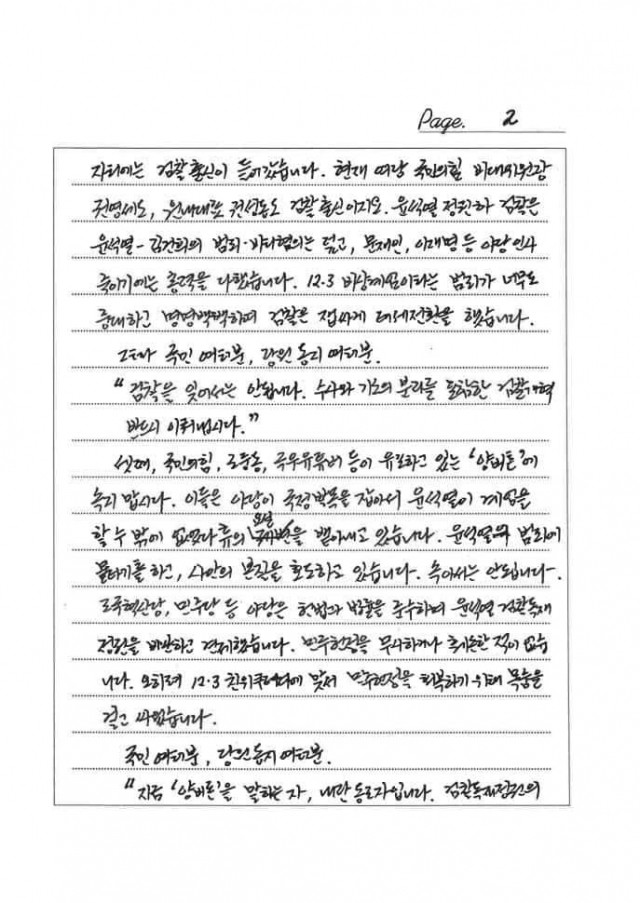 Page. 2
자리에는 검찰 출신이 들어갔습니다. 현재 여당 국민의힘 비대위원장
권영세도, 원내대표 권성동도 검찰 출신이지요. 윤석열 정권 하 검찰은
윤석열-김건희의 범죄·비리혐의는 덮고, 문재인, 이재명 등 야당인사
죽이기에는 총력을 다했습니다. 12.3 비상계엄이라는 범죄가 너무도
중대하고 명명백백하며 검찰은 잽싸게 태세전환을 했습니다.
그러나 국민 여러분, 당원 동지 여러분.
“검찰을 잊어서는 안됩니다. 수사와 기소의 분리를 포함한 검찰개혁
반드시 이뤄냅시다.”
셋째, 국민의힘, 조중동, 극우유튜버 등이 유포하고 있는 ‘양비론’에
속지 맙시다. 이들은 야당이 국정발목을 잡아서 윤석열이 계엄을
할 수 밖에 없었다 류의 요설을 뱉어내고 있습니다. 윤석열의 범죄에
물타기를 하고, 사안의 본질을 호도하고 있습니다. 속아서는 안됩니다.
조국혁신당, 민주당 등 야당은 헌법과 법률을 준수하며 윤석열 검찰독재
정권을 비판하고 견제했습니다. 민주헌정을 무시하거나 훼손한 적이 없습
니다. 오히려 12.3 친위쿠데타에 맞서 민주헌정을 회복하기 위해 목숨을
걸고 싸웠습니다.
국민 여러분, 당원동지 여러분.
“지금 ‘양비론’을 말하는 자, 내란 동조자입니다. 검찰독재정권의